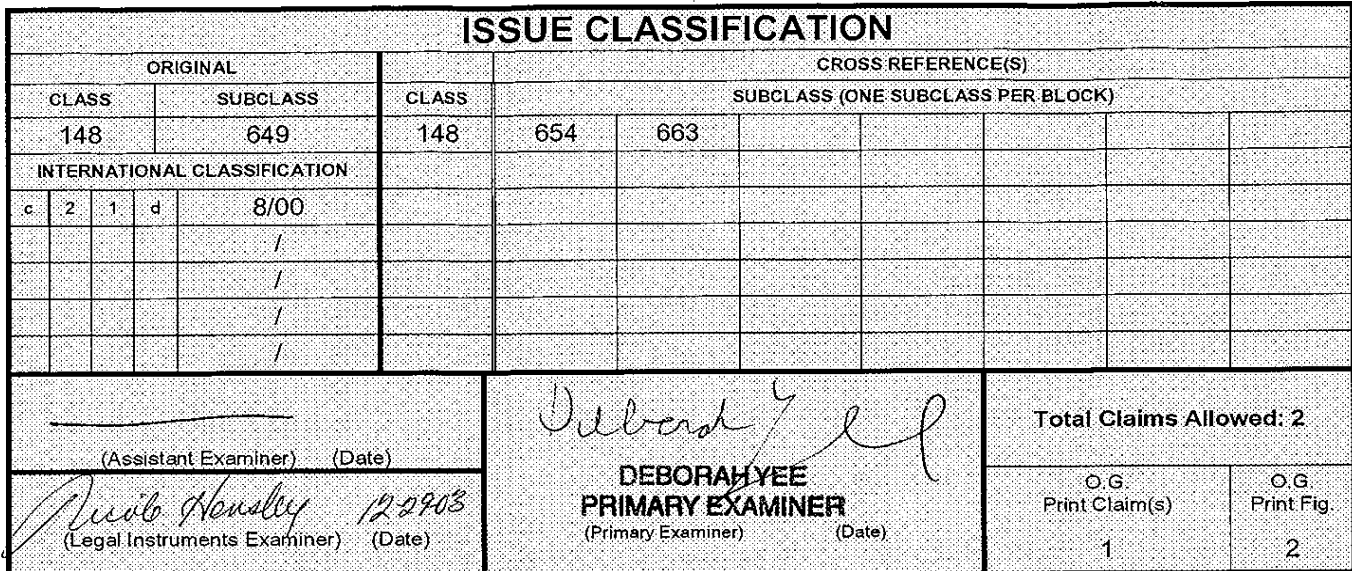 ISSUE CLASSIFICATION
ORIGINAL CROSS REFERENCE(S)
CLASS SUBCLASS CLASS SUBCLASS (ONE SUBCLASS PER BLOCK)
148 649 148 654 663
INTERNATIONAL CLASSIFICATION
c 2 1 d 8/00
/
/
/
/
(Assistant Examiner) (Date)
Nicole Hensley 12-29-03
(Legal Instruments Examiner) (Date)
Deborah Yee
DEBORAH YEE
PRIMARY EXAMINER
(Primary Examiner) (Date)
Total Claims Allowed: 2
O.G. O.G.
Print Claim(s) Print Fig.
1 2